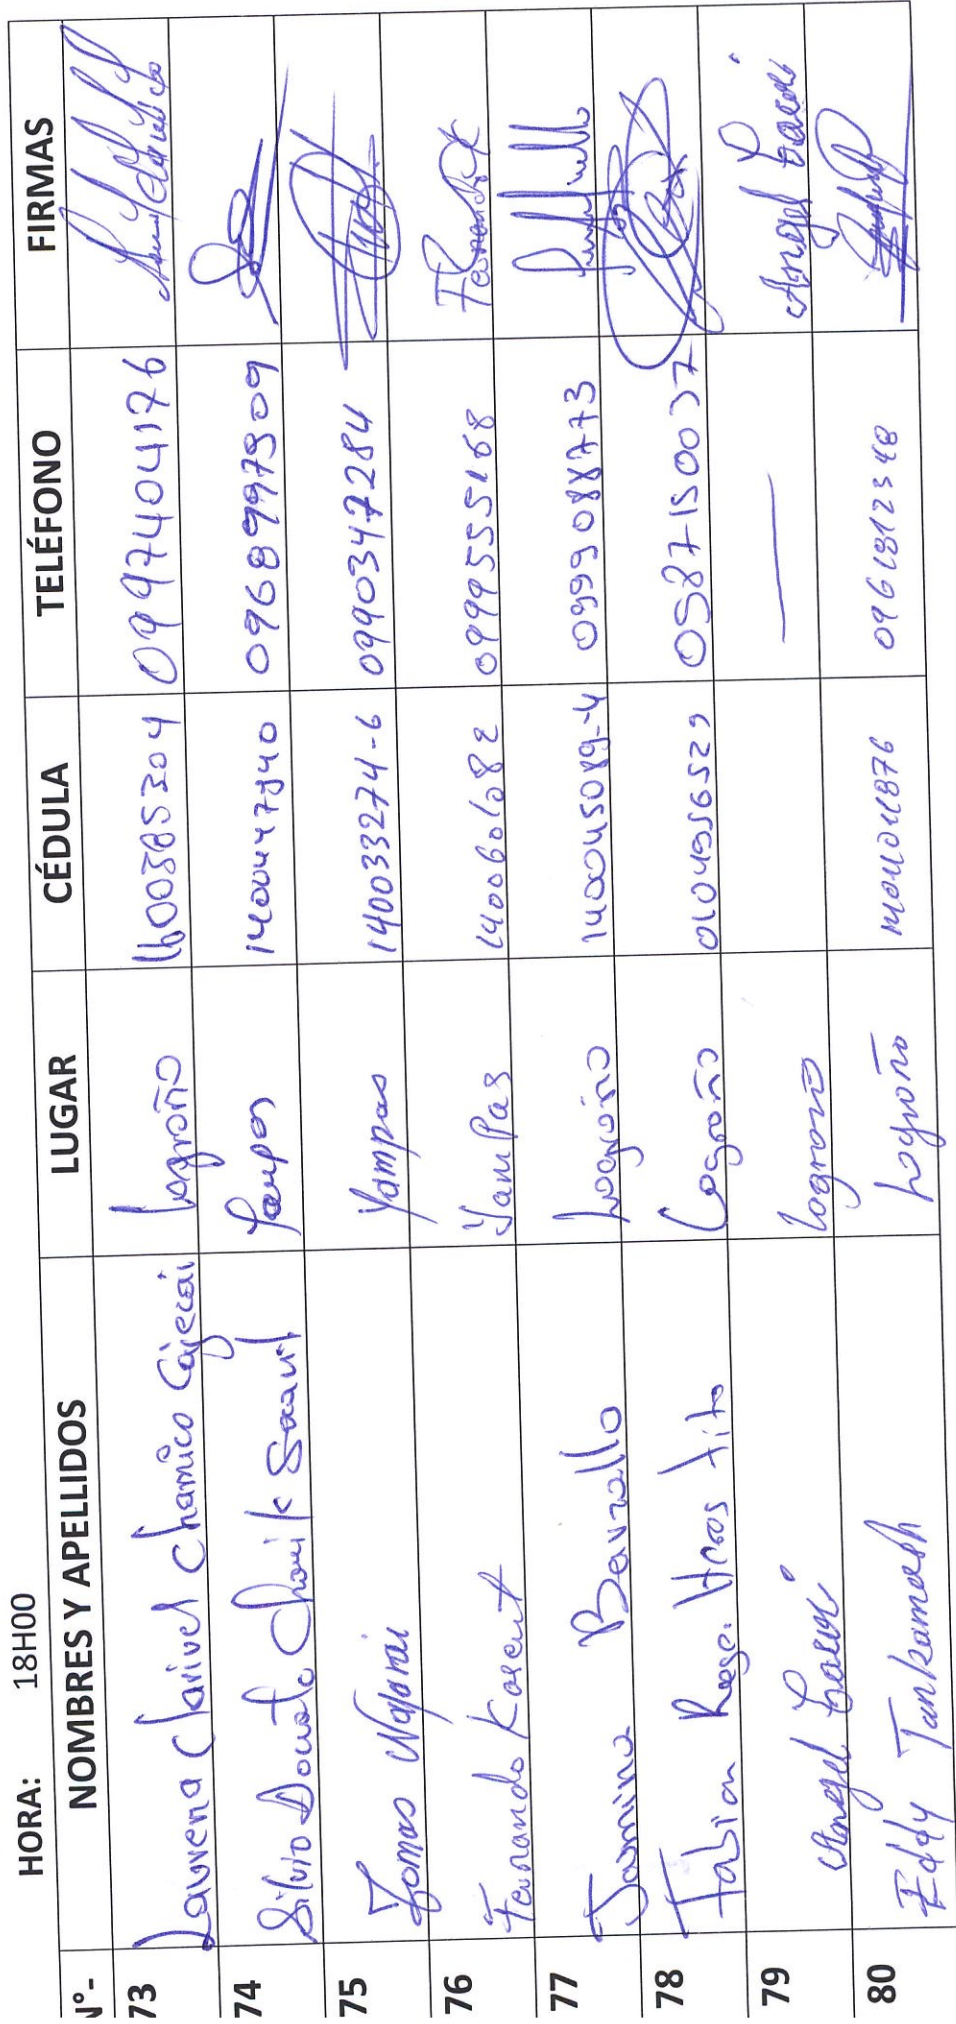 HORA: 18H00
N°- NOMBRES Y APELLIDOS LUGAR CÉDULA TELÉFONO FIRMAS
73 Laurena Clarivel Chamico Logroño 0997404176
74 Silvio Donato Chamik Yampas 1400447840 0968997909
75 Tomas Yampas 140033274-6 0990347284
76 Fernando Karent Yampas 1400601082 0999555168 Fernando K
77 Jasmina Logroño 140045089-4 0999088773
78 Fabian Hross Tito Logroño 0104956529 0987150037
79 Angel Logroño — Angel
80 Eddy Tankamash Logroño 0961812348